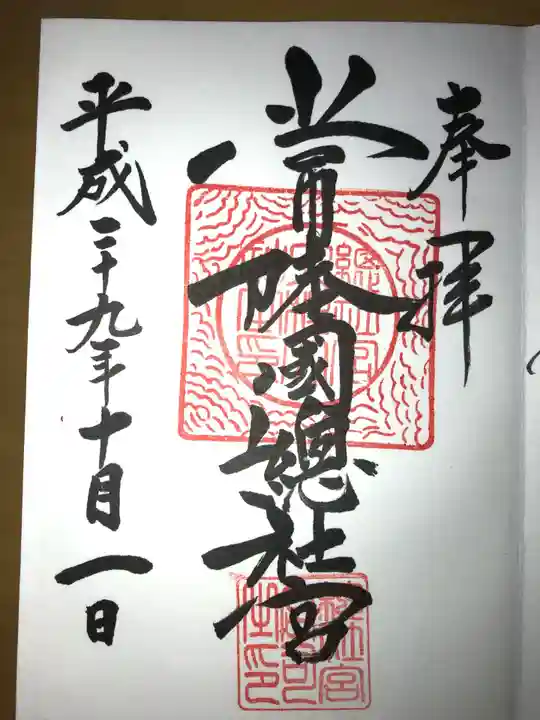 奉拝
常陸國總社宮
平成二十九年十月一日